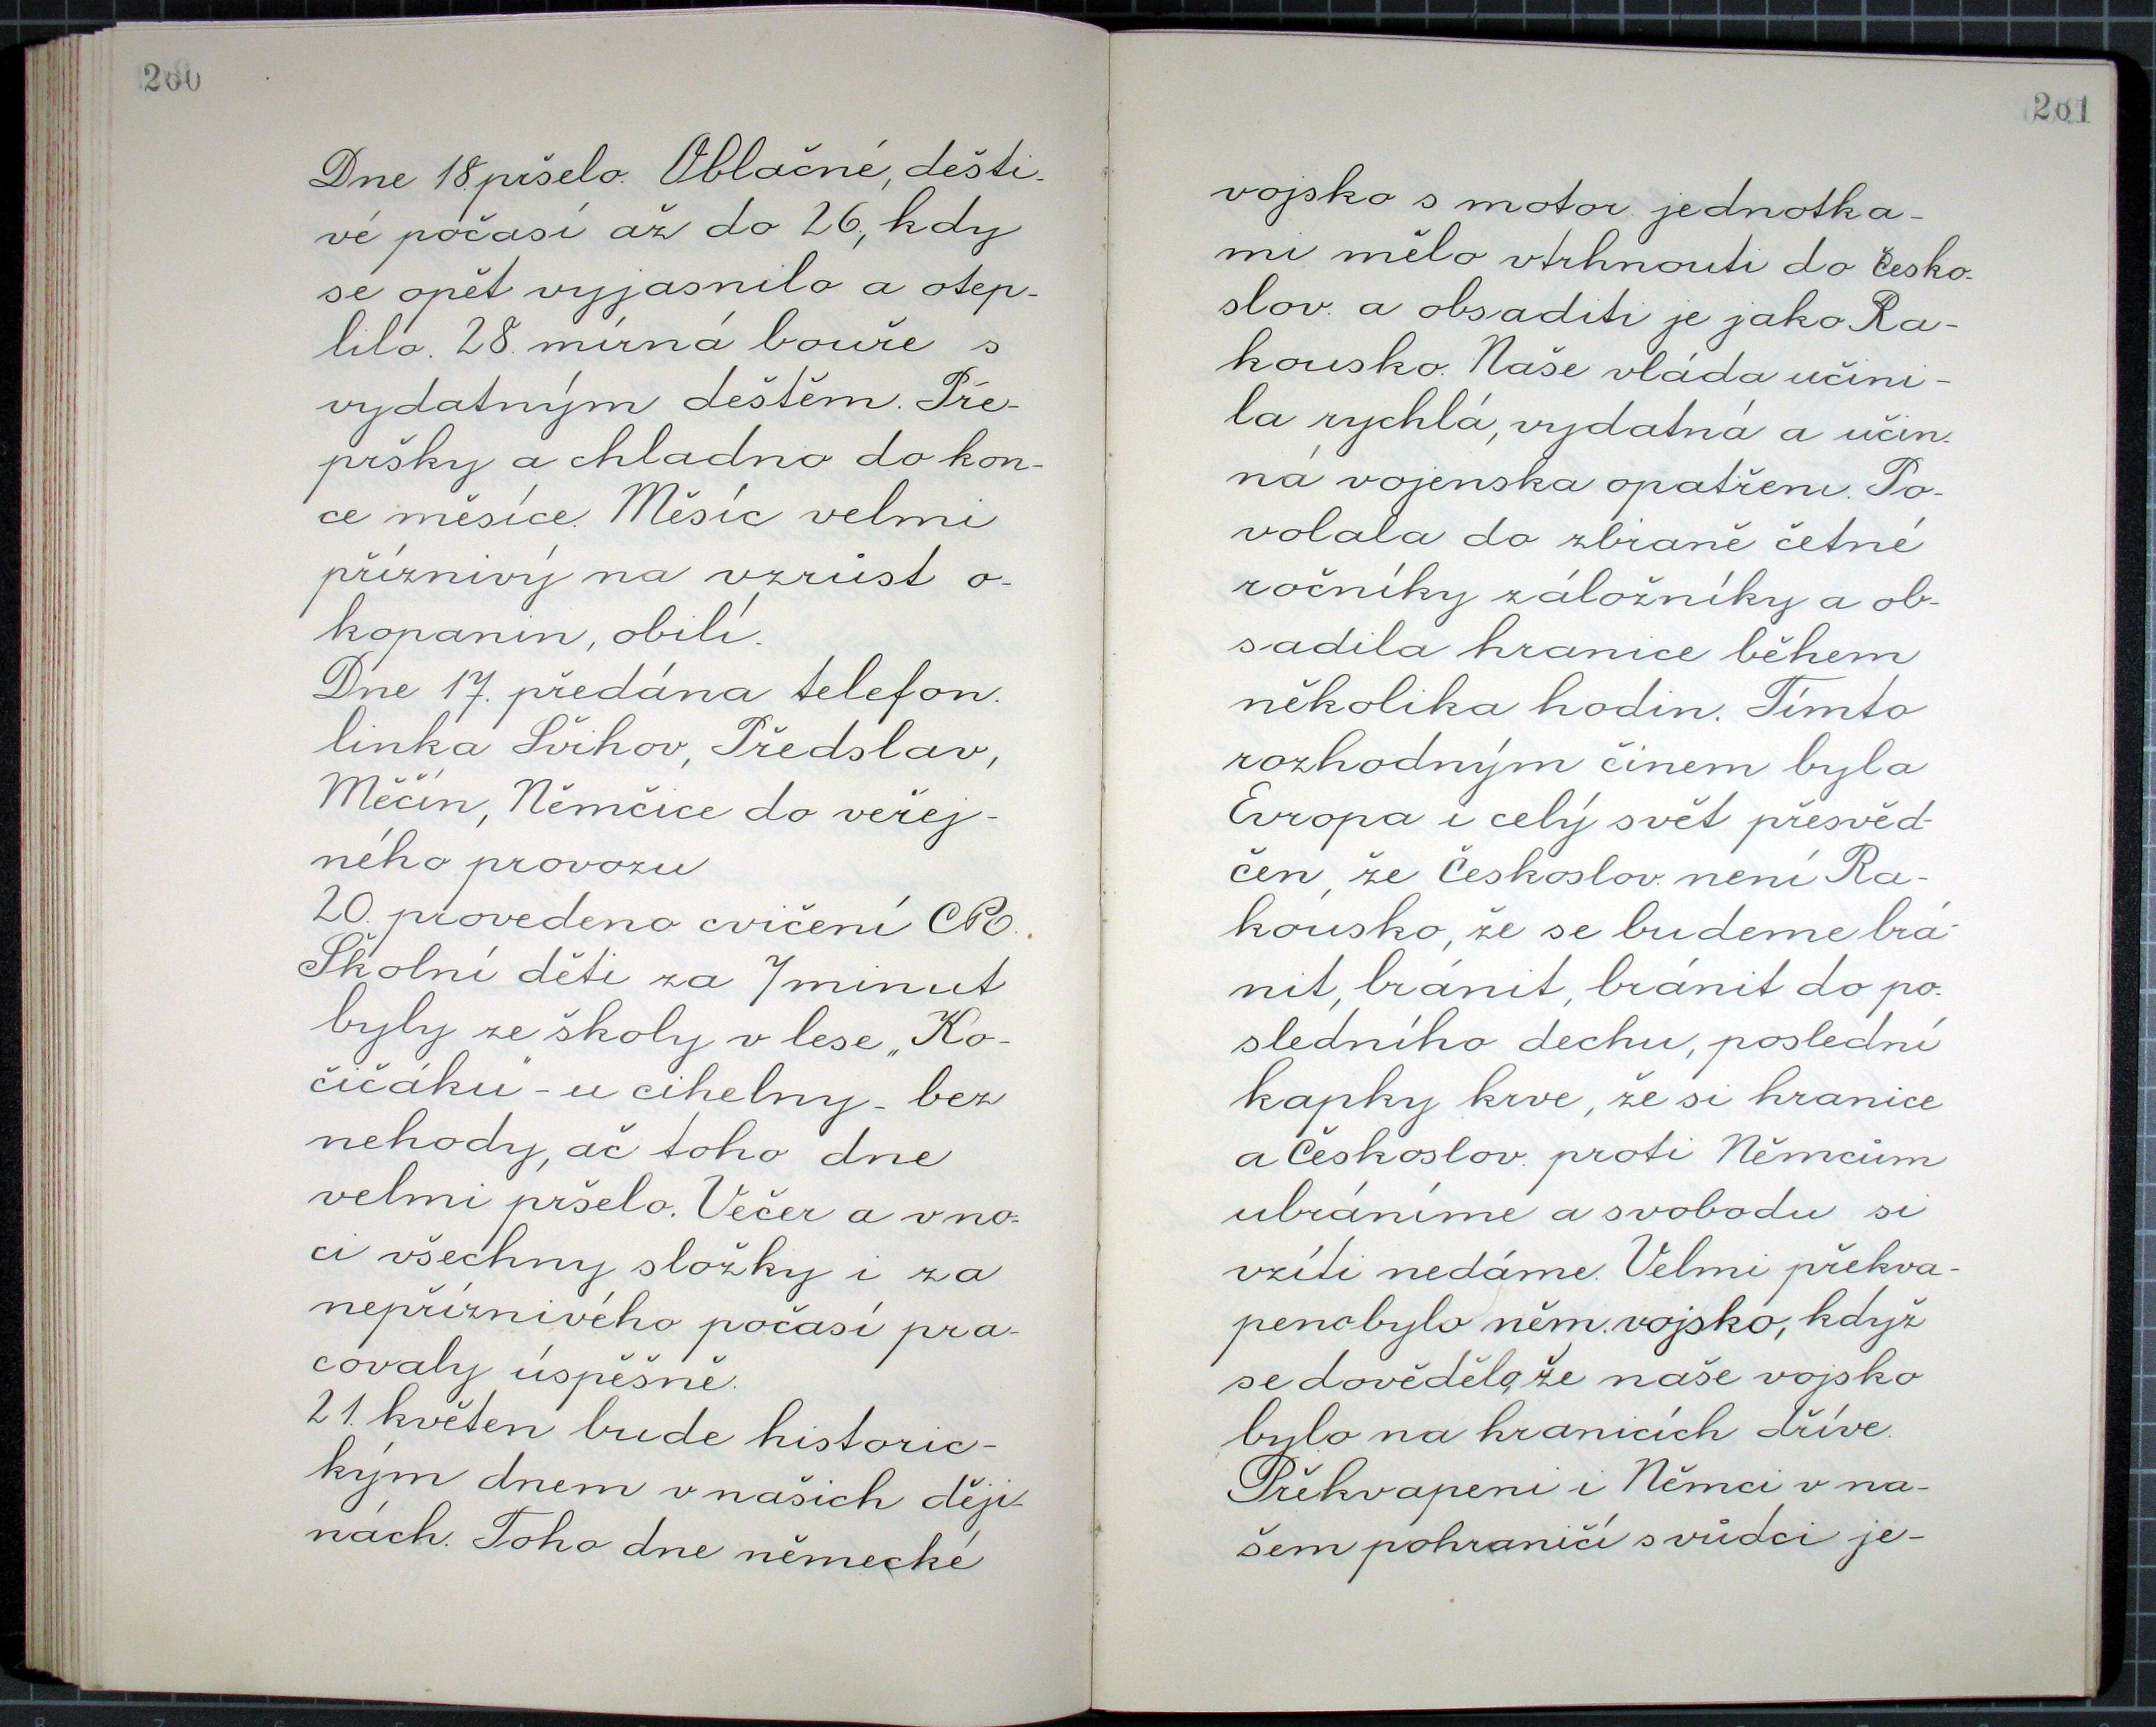 200
Dne 18. pršelo. Oblačné, dešti-
vé počasí až do 26., kdy
se opět vyjasnilo a otep-
lilo. 28. mírná bouře s
vydatným deštěm. Pře-
pršky a chladno do kon-
ce měsíce. Měsíc velmi
příznivý na vzrůst o-
kopanin, obilí.
Dne 17. předána telefon.
linka Švihov, Předslav,
Měčín, Němčice do veřej-
ného provozu
20. provedeno cvičení CPO.
Školní děti za 7 minut
byly ze školy v lese „Ko-
čičáku" - u cihelny - bez
nehody, ač toho dne
velmi pršelo. Večer a v no-
ci všechny složky i za
nepříznivého počasí pra-
covaly úspěšně.
21. květen bude historic-
kým dnem v našich ději-
nách. Toho dne německé
201
vojsko s motor. jednotka-
mi mělo vtrhnouti do Česko-
slov. a obsaditi je jako Ra-
kousko. Naše vláda učini-
la rychlá, vydatná a účin-
ná vojenska opatřeni. Po-
volala do zbraně četné
ročníky záložníky a ob-
sadila hranice během
několika hodin. Tímto
rozhodným činem byla
Evropa i celý svět přesvěd-
čen, že Českoslov. není Ra-
kousko, že se budeme brá-
nit, bránit, bránit do po-
sledního dechu, poslední
kapky krve, že si hranice
a Českoslov. proti Němcům
ubráníme a svobodu si
vzíti nedáme. Velmi překva-
peno bylo něm. vojsko, když
se dovědělo, že naše vojsko
bylo na hranicích dříve.
Překvapeni i Němci v na-
šem pohraničí s vůdci je-